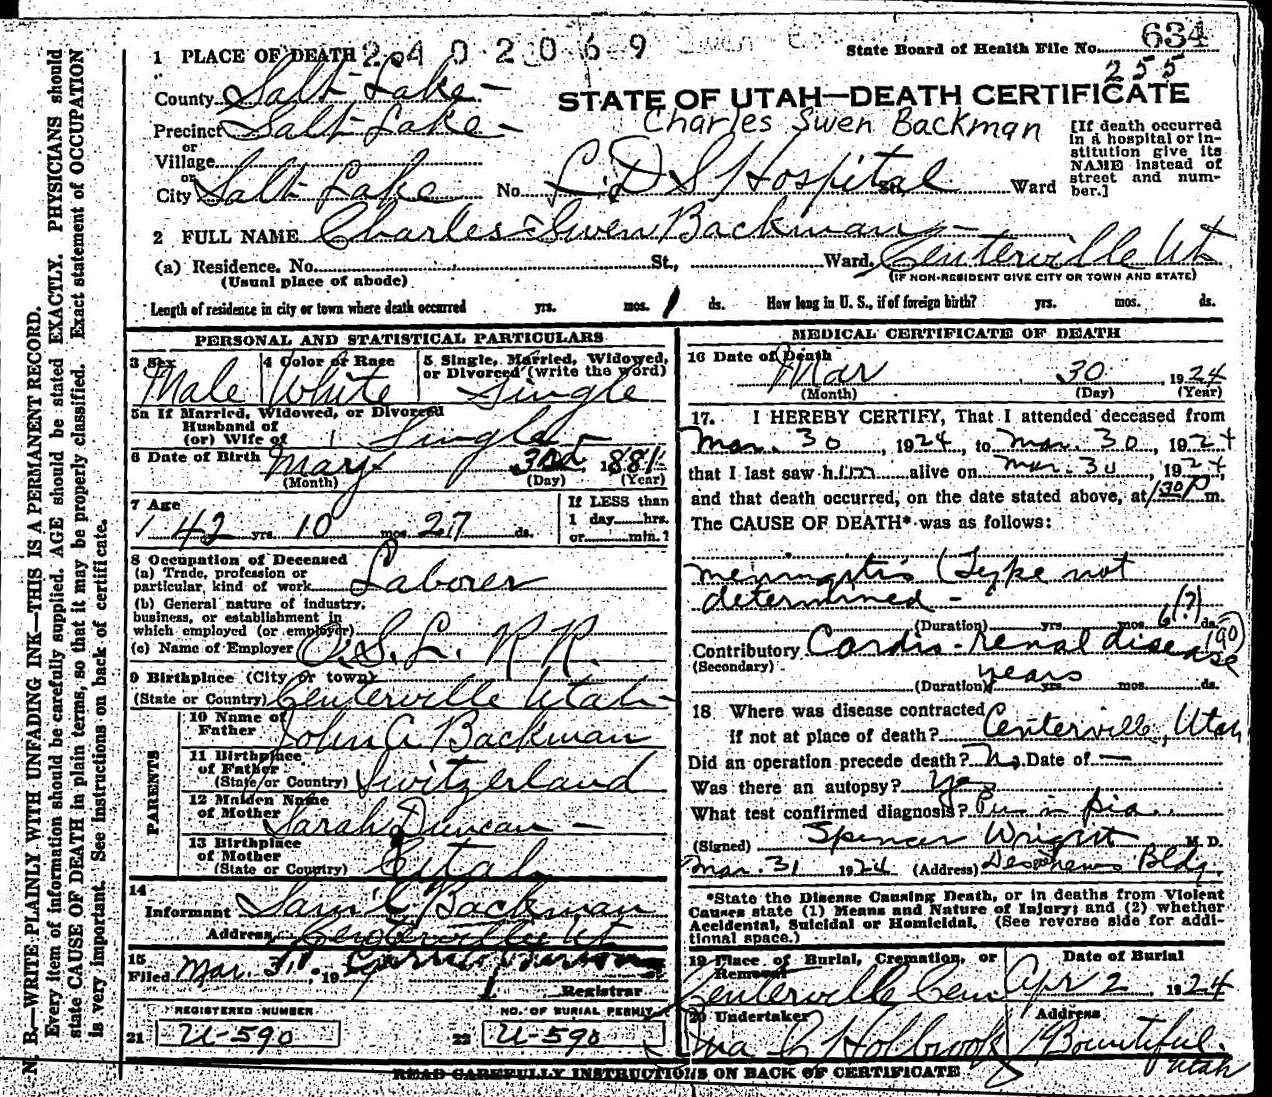 634
1 PLACE OF DEATH 2402069
State Board of Health File No.
255
County Salt Lake
STATE OF UTAH—DEATH CERTIFICATE
Precinct Salt Lake
Charles Swen Backman
[If death occurred in a hospital or institution give its NAME instead of street and number.]
or
Village
or
City Salt Lake No. L.D.S Hospital St., Ward
2 FULL NAME Charles Swen Backman
(a) Residence. No. St., Ward. Centerville Ut
(Usual place of abode) (IF NON-RESIDENT GIVE CITY OR TOWN AND STATE)
Length of residence in city or town where death occurred yrs. mos. 1 ds. How long in U. S., if of foreign birth? yrs. mos. ds.
PERSONAL AND STATISTICAL PARTICULARS
3 Sex 4 Color or Race 5 Single, Married, Widowed, or Divorced (write the word)
Male White Single
5a If Married, Widowed, or Divorced
Husband of
(or) Wife of Single
6 Date of Birth May 3rd 1881
(Month) (Day) (Year)
7 Age If LESS than
1 day hrs.
42 yrs. 10 mos. 27 ds. or min.?
8 Occupation of Deceased
(a) Trade, profession or
particular, kind of work Laborer
(b) General nature of industry,
business, or establishment in
which employed (or employer)
(c) Name of Employer O.S.L. R R.
9 Birthplace (City or town)
(State or Country) Centerville Utah
PARENTS
10 Name of
Father John A Backman
11 Birthplace
of Father
(State or Country) Switzerland
12 Maiden Name
of Mother Sarah Duncan
13 Birthplace
of Mother
(State or Country) Utah
14
Informant Sam'l Backman
Address Centerville Ut
15
Filed Mar. 31. 19
Registrar
REGISTERED NUMBER NO. OF BURIAL PERMIT
21 U-590 22 U-590
MEDICAL CERTIFICATE OF DEATH
16 Date of Death
Mar 30 1924
(Month) (Day) (Year)
17. I HEREBY CERTIFY, That I attended deceased from
Mar. 30, 1924, to Mar. 30, 1924
that I last saw him alive on Mar. 30, 1924
and that death occurred, on the date stated above, at 130 P m.
The CAUSE OF DEATH* was as follows:
Meningitis (Type not
determined -
(Duration) yrs. mos. 6(?) ds.
Contributory Cardio-renal disease (90)
(Secondary)
(Duration) years yrs. mos. ds.
18 Where was disease contracted
If not at place of death? Centerville, Utah
Did an operation precede death? No. Date of —
Was there an autopsy? Yes
What test confirmed diagnosis? Pus in pia.
(Signed) Spencer Wright M. D.
Mar. 31 1924 (Address) Des. News Bldg.
*State the Disease Causing Death, or in deaths from Violent
Causes state (1) Means and Nature of Injury; and (2) whether
Accidental, Suicidal or Homicidal. (See reverse side for addi-
tional space.)
19 Place of Burial, Cremation, or Date of Burial
Removal
Centerville Cem Apr 2, 1924
20 Undertaker Address
Holbrook Bountiful.
Utah
READ CAREFULLY INSTRUCTIONS ON BACK OF CERTIFICATE
N. B.—WRITE PLAINLY WITH UNFADING INK—THIS IS A PERMANENT RECORD.
Every item of information should be carefully supplied. AGE should be stated EXACTLY. PHYSICIANS should
state CAUSE OF DEATH in plain terms, so that it may be properly classified. Exact statement of OCCUPATION
is very important. See instructions on back of certificate.